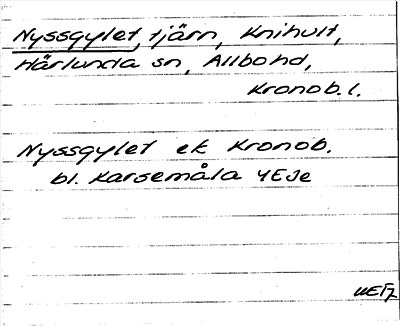 Nyssgylet, tjärn, Knihult,
Härlunda sn, Allbo hd,
Kronob. l.
Nyssgylet ek Kronob.
bl. Karsemåla 4E5e